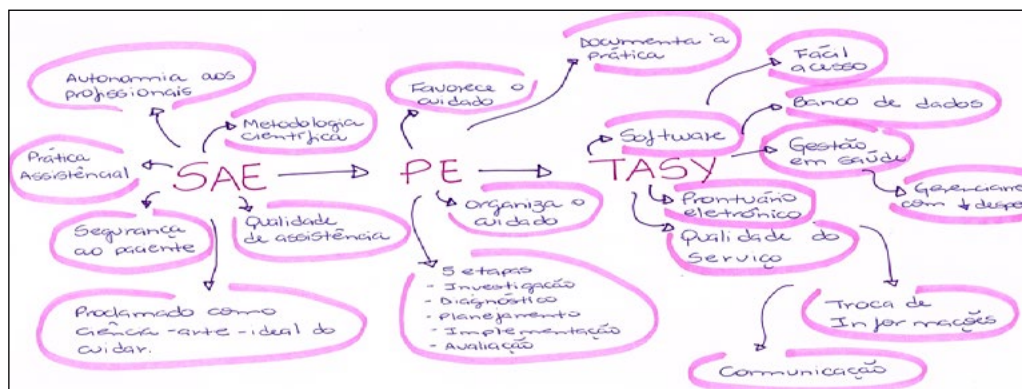 Autonomia aos
profissionais
Metodologia
científica
Prática
Assistêncial
SAE
Segurança
ao paciente
Qualidade
de assistência
Proclamado como
ciência-arte-ideal do
cuidar.
Favorece o
cuidado
Documenta a
prática
PE
Organiza o
cuidado
5 etapas
- Investigação
- Diagnóstico
- Planejamento
- Implementação
- Avaliação
Software
Fácil
acesso
Banco de dados
TASY
Gestão
em saúde
com ↓
Prontuário
eletrônico
Qualidade do
Serviço
Troca de
Informações
Comunicação